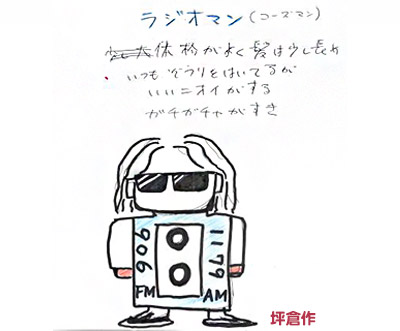 ラジオマン(コーズマン)
体格がよく髪は少し長め
いつもぞうりをはいてるが
いいニオイがする
ガチガチャがすき
906
1179
FM
AM
坪倉作